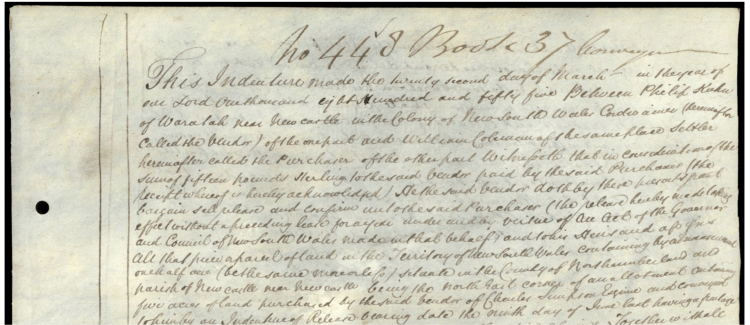 No 448 Book 37 Conveyance
This Indenture made the twenty second day of March in the year of
our Lord One thousand eight Hundred and fifty five Between Philip Hahn
of Waratah near Newcastle in the Colony of New South Wales Cordwainer (hereinafter
called the Vendor) of the one part and William Coleman of the same place Settler
hereinafter called the Purchaser of the other part Witnesseth that in consideration of the
sum of fifteen pounds Sterling to the said Vendor paid by the said Purchaser (the
receipt whereof is hereby acknowledged) He the said Vendor doth by these presents grant
bargain sell release and confirm unto the said Purchaser (the release hereby made taking
effect without a preceding lease for a year under and by virtue of an Act of the Governor
and Council of New South Wales made in that behalf) and to his Heirs and assigns
All that piece or parcel of land in the Territory of New South Wales containing by admeasurement
one half acre (be the same more or less) Situate in the County of Northumberland and
parish of Newcastle near Newcastle being the North East corner of an allotment containing
five acres of land purchased by the said Vendor of Charles Simpson Esquire and conveyed
to him by an Indenture of Release bearing date the ninth day of June last having a frontage
Together with all